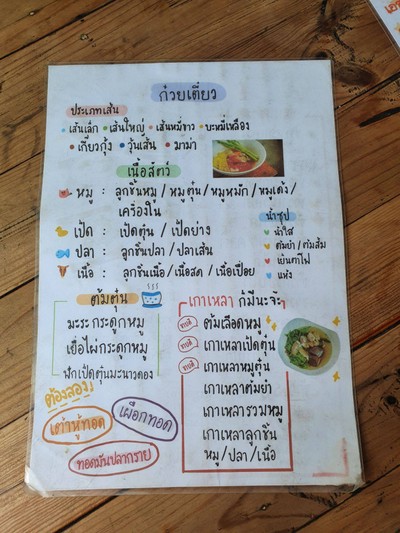 ก๋วยเตี๋ยว
ประเภทเส้น
เส้นเล็ก เส้นใหญ่ เส้นหมี่ขาว บะหมี่เหลือง
เกี๊ยวกุ้ง วุ้นเส้น มาม่า
เนื้อสัตว์
หมู : ลูกชิ้นหมู / หมูตุ๋น / หมูหมัก / หมูเด้ง /
เครื่องใน
เป็ด : เป็ดตุ๋น / เป็ดย่าง
ปลา : ลูกชิ้นปลา / ปลาเส้น
เนื้อ : ลูกชิ้นเนื้อ / เนื้อสด / เนื้อเปื่อย
น้ำซุป
น้ำใส
ต้มยำ / ต้มส้ม
เย็นตาโฟ
แห้ง
ต้มตุ๋น
มะระกระดูกหมู
เยื่อไผ่กระดูกหมู
ฟักเป็ดตุ๋นมะนาวดอง
ต้องลอง
เต้าหู้ทอด
เผือกทอด
ทอดมันปลากราย
เกาเหลา ก็มีนะจ๊ะ
ต้มเลือดหมู
เกาเหลาเป็ดตุ๋น
เกาเหลาหมูตุ๋น
เกาเหลาต้มยำ
เกาเหลารวมหมู
เกาเหลาลูกชิ้น
หมู / ปลา / เนื้อ